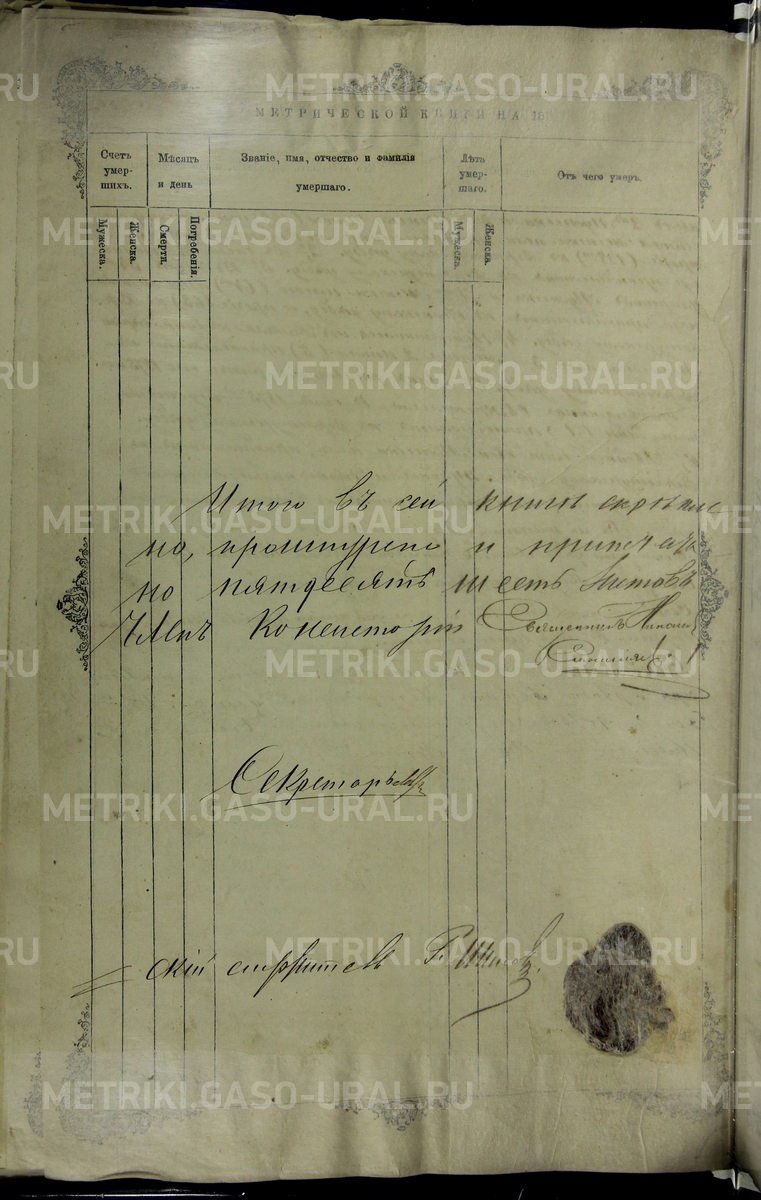 МЕТРИЧЕСКОЙ КНИГИ НА 18
Счетъ умер-шихъ.
Мѣсяцъ и день
Званіе, имя, отчество и фамилія умершаго.
Лѣтъ умер-шаго.
Отъ чего умеръ.
Мужеска.
Женска.
Смерти.
Погребенія.
Мужеска.
Женска.
Итого въ сей книгѣ скрѣпле
но, прошнурено и припечата
но пятдесятъ шесть листовъ
Членъ Консисторіи Священникъ
Секретарь
METRIKI.GASO-URAL.RU